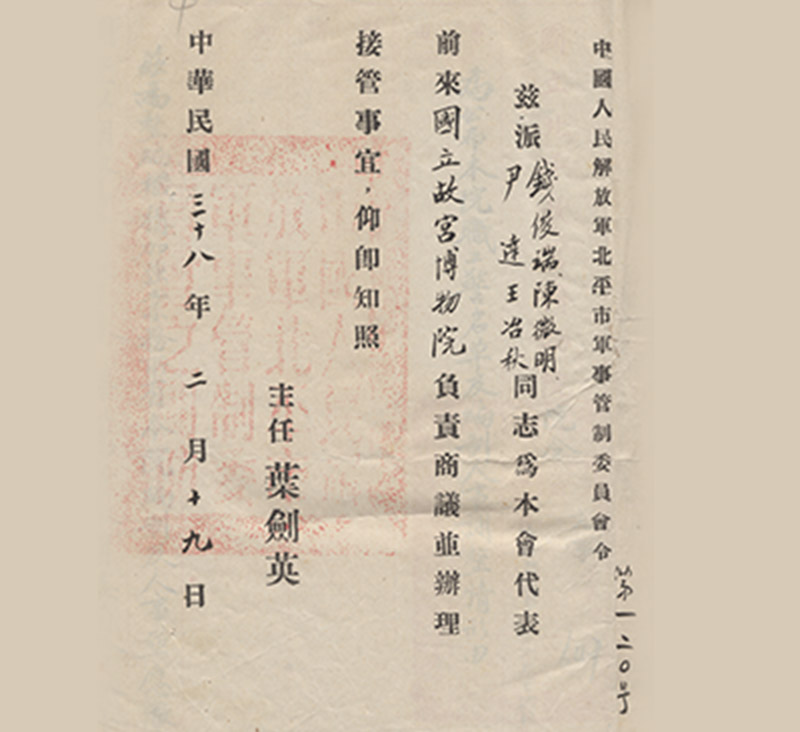 中國人民解放軍北平市軍事管制委員會令 第一二〇号
茲派錢俊瑞陳微明
尹達王冶秋同志爲本會代表
前來國立故宮博物院負責商議並辦理
接管事宜，仰卽知照
主任葉劍英
中華民國三十八年二月十九日